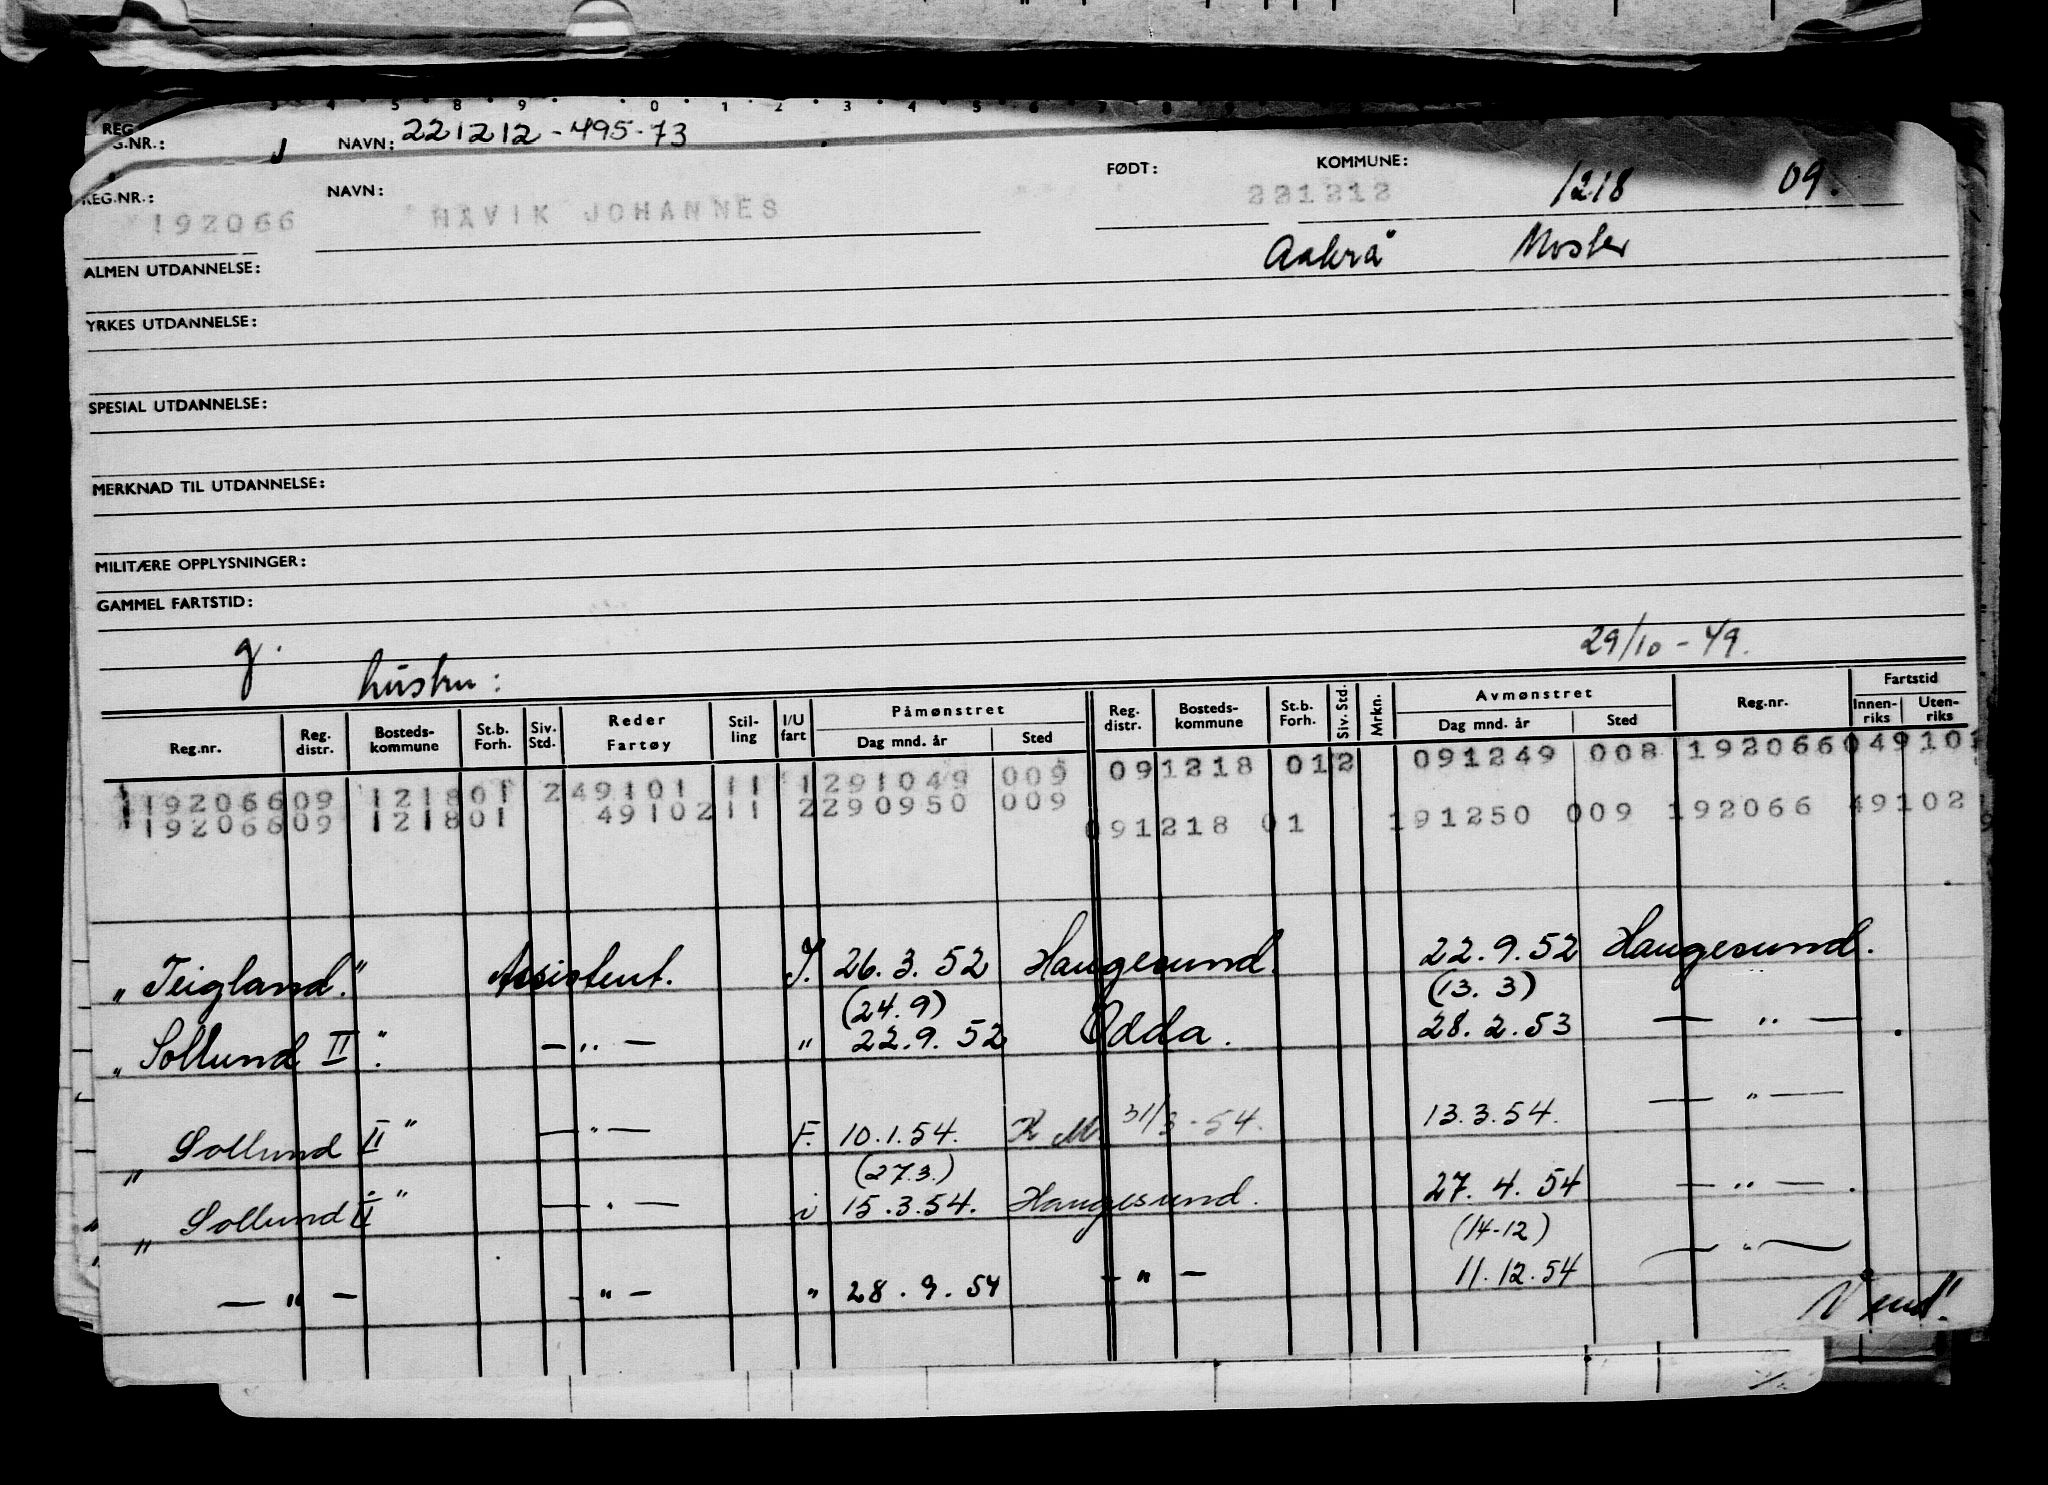 3 4 5 8 9 0 1 2 3 4 5 6 7 8 9
REG
G.NR.: J NAVN: 221212-495-73
REG.NR.: NAVN: FØDT: KOMMUNE:
192066 HAVIK JOHANNES 221212 1218 09.
Aakrå Moster
ALMEN UTDANNELSE:
YRKES UTDANNELSE:
SPESIAL UTDANNELSE:
MERKNAD TIL UTDANNELSE:
MILITÆRE OPPLYSNINGER:
GAMMEL FARTSTID:
g. hustru: 29/10-49.
Reg.nr. Reg. distr. Bosteds-kommune St.b. Forh. Siv. Std. Reder Fartøy Stil-ling I/U fart Påmønstret Dag mnd. år Sted Reg. distr. Bosteds-kommune St.b. Forh. Siv. Std. Mrkn. Avmønstret Dag mnd. år Sted Reg.nr. Fartstid Innen-riks Uten-riks
119206609 121801 249101 11 1291049 009 091218 012 091249 008 192066049101
19206609 121801 49102 11 2290950 009 091218 01 191250 009 192066 49102
„Teigland." Assistent. I. 26.3.52 Haugesund. 22.9.52 Haugesund.
(24.9) (13.3)
„Sollund II". — " — " 22.9.52 Odda. 28.2.53 — " —
„Sollund II" — " — F. 10.1.54. K M. 31/3-54. 13.3.54. — " —
(27.3.)
„Sollund II" — " — i 15.3.54. Haugesund. 27.4.54 — " —.
(14-12)
— " — — " — " 28.9.54 — " — 11.12.54 — " —
Vend!